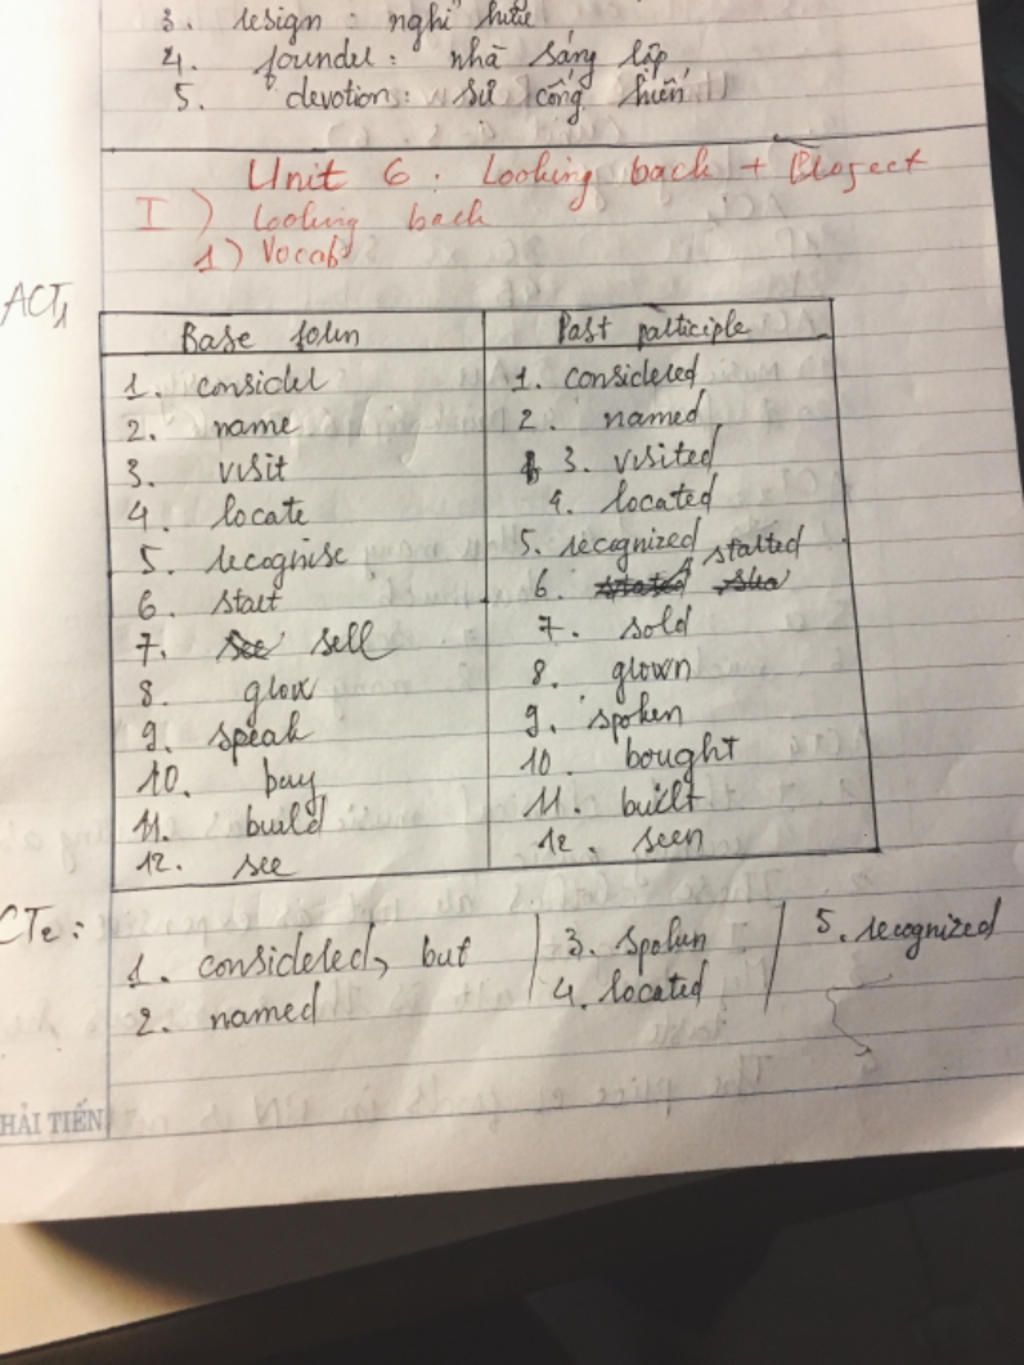 3. resign : nghỉ hưu
4. founder : nhà sáng lập
5. devotion : sự cống hiến
Unit 6 : Looking back + Project
I ) Looking back
1 ) Vocab
ACT1
Base form Past participle
1. consider 1. considered
2. name 2. named
3. visit 3. visited
4. locate 4. located
5. recognise 5. recognized
6. start 6. started
7. sell 7. sold
8. grow 8. grown
9. speak 9. spoken
10. buy 10. bought
11. build 11. built
12. see 12. seen
CT2:
1. considered, but 3. spoken 5. recognized
2. named 4. located
HẢI TIẾN